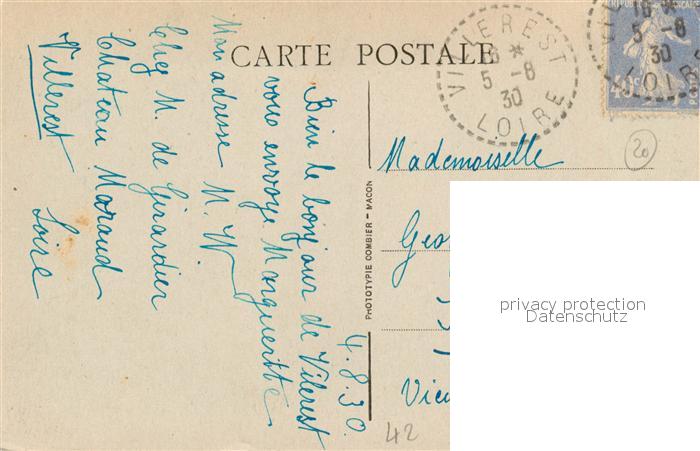 CARTE POSTALE
VILLEREST
16 *
5 -8
30
LOIRE
5 -8
30
LOIRE
20
4.8.30.
Bien le bonjour de Vilerest
vous envoye Margueritte
Mon adresse M. W.
Chez M. de Girardier
Chateau Maraud
Villerest Loire
PHOTOTYPIE COMBIER - MACON
Mademoiselle
Geo
privacy protection
Datenschutz
42